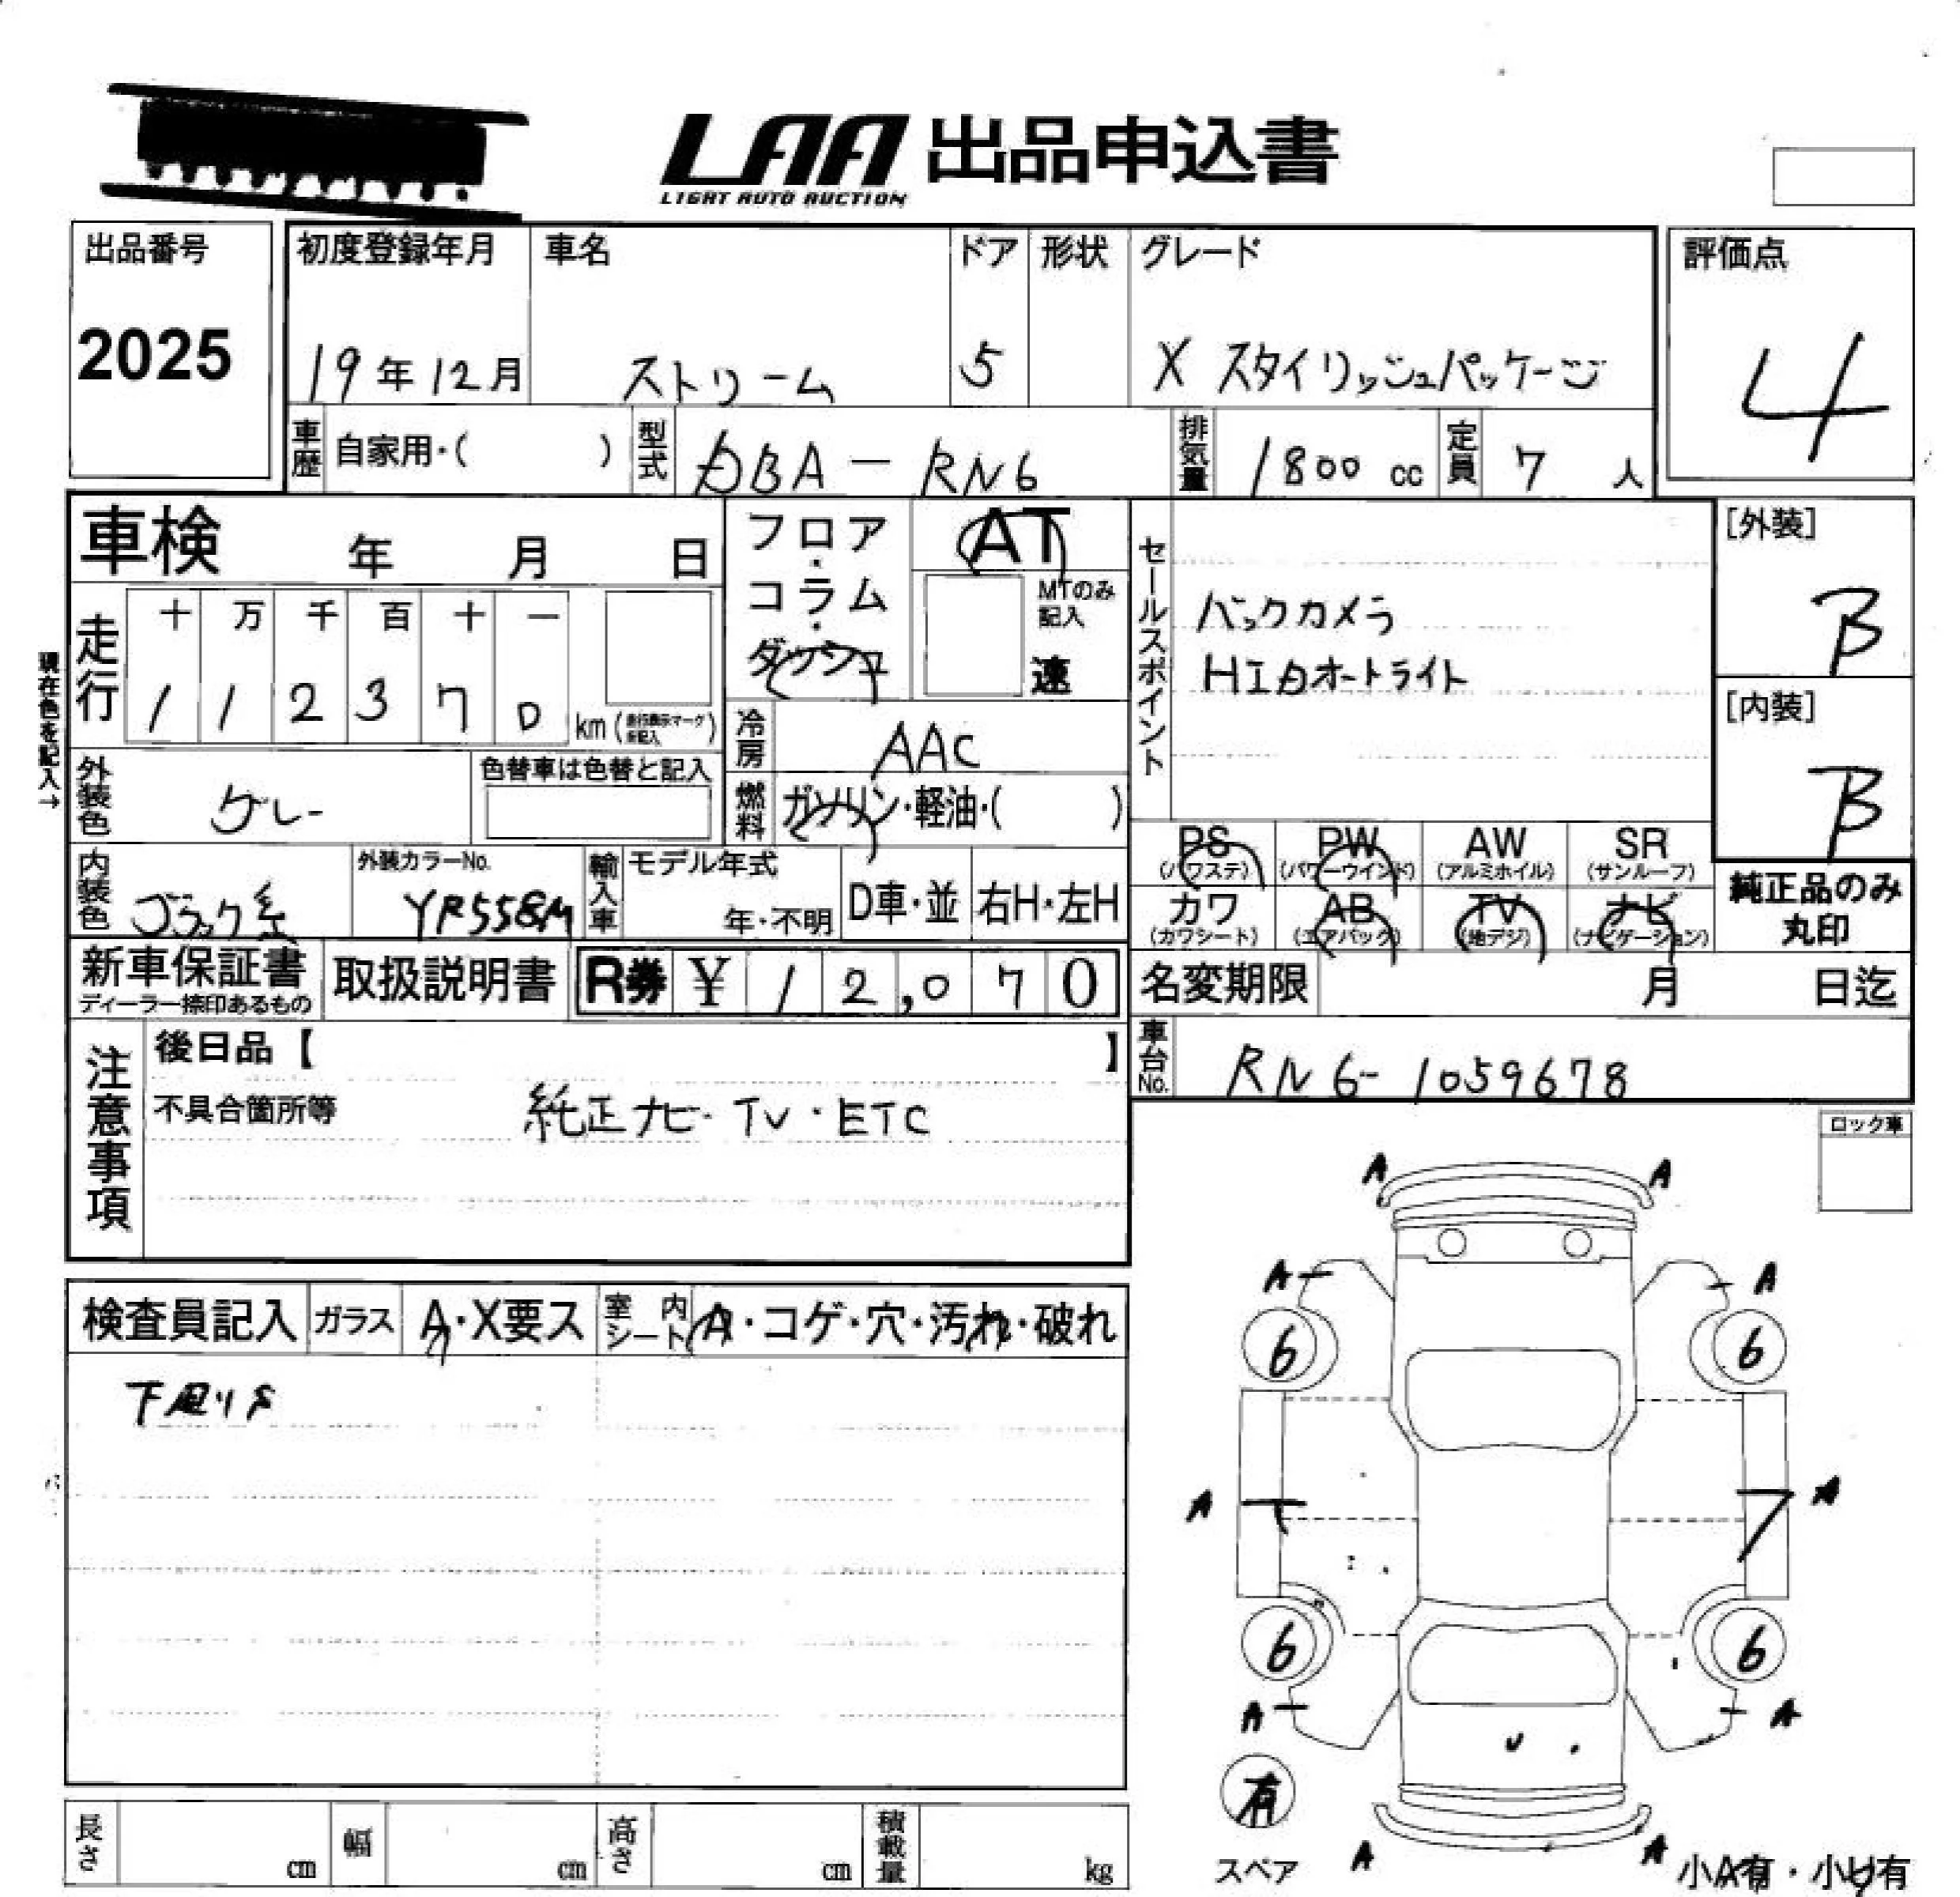 LAA 出品申込書
LIGHT AUTO AUCTION
出品番号
2025
初度登録年月
19年12月
車名
ストリーム
ドア
5
形状
グレード
X スタイリッシュパッケージ
評価点
4
車歴 自家用・( )
型式 DBA-RN6
排気量 1800 cc
定員 7 人
車検 年 月 日
フロア・コラム・ダッシュ
AT
MTのみ記入
速
セールスポイント
バックカメラ
HIDオートライト
[外装]
B
[内装]
B
現在色を記入→
走行
十 万 千 百 十 一
1 1 2 3 7 0 km
冷房 AAC
外装色 グレー
色替車は色替と記入
燃料 ガソリン・軽油・( )
PS (パワステ)
PW (パワーウインド)
AW (アルミホイル)
SR (サンルーフ)
カワ (カワシート)
AB (エアバック)
TV (地デジ)
ナビ (ナビゲーション)
純正品のみ
丸印
内装色 ブラック系
外装カラーNo.
YR558M
輸入車
モデル年式
年・不明
D車・並
右H・左H
新車保証書
ディーラー捺印あるもの
取扱説明書
R券 ¥ 12,070
名変期限 月 日迄
注意事項
後日品【 】
不具合箇所等
純正ナビ・TV・ETC
車台No. RN6-1059678
ロック車
検査員記入
ガラス A・X要ス
室内シート A・コゲ・穴・汚れ・破れ
A A
A A
6 6
A A
6 6
A A
有
スペア
A A
小A有・小U有
長さ cm
幅 cm
高さ cm
積載量 kg